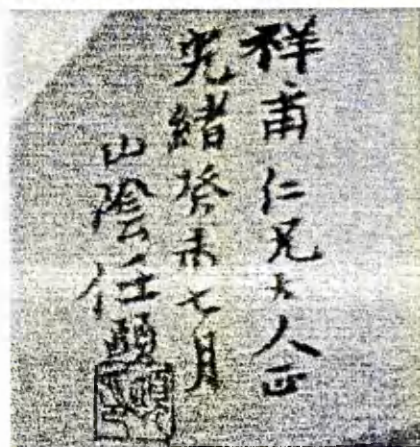 祥甫仁兄大人正
光緒癸未七月
山陰任頤